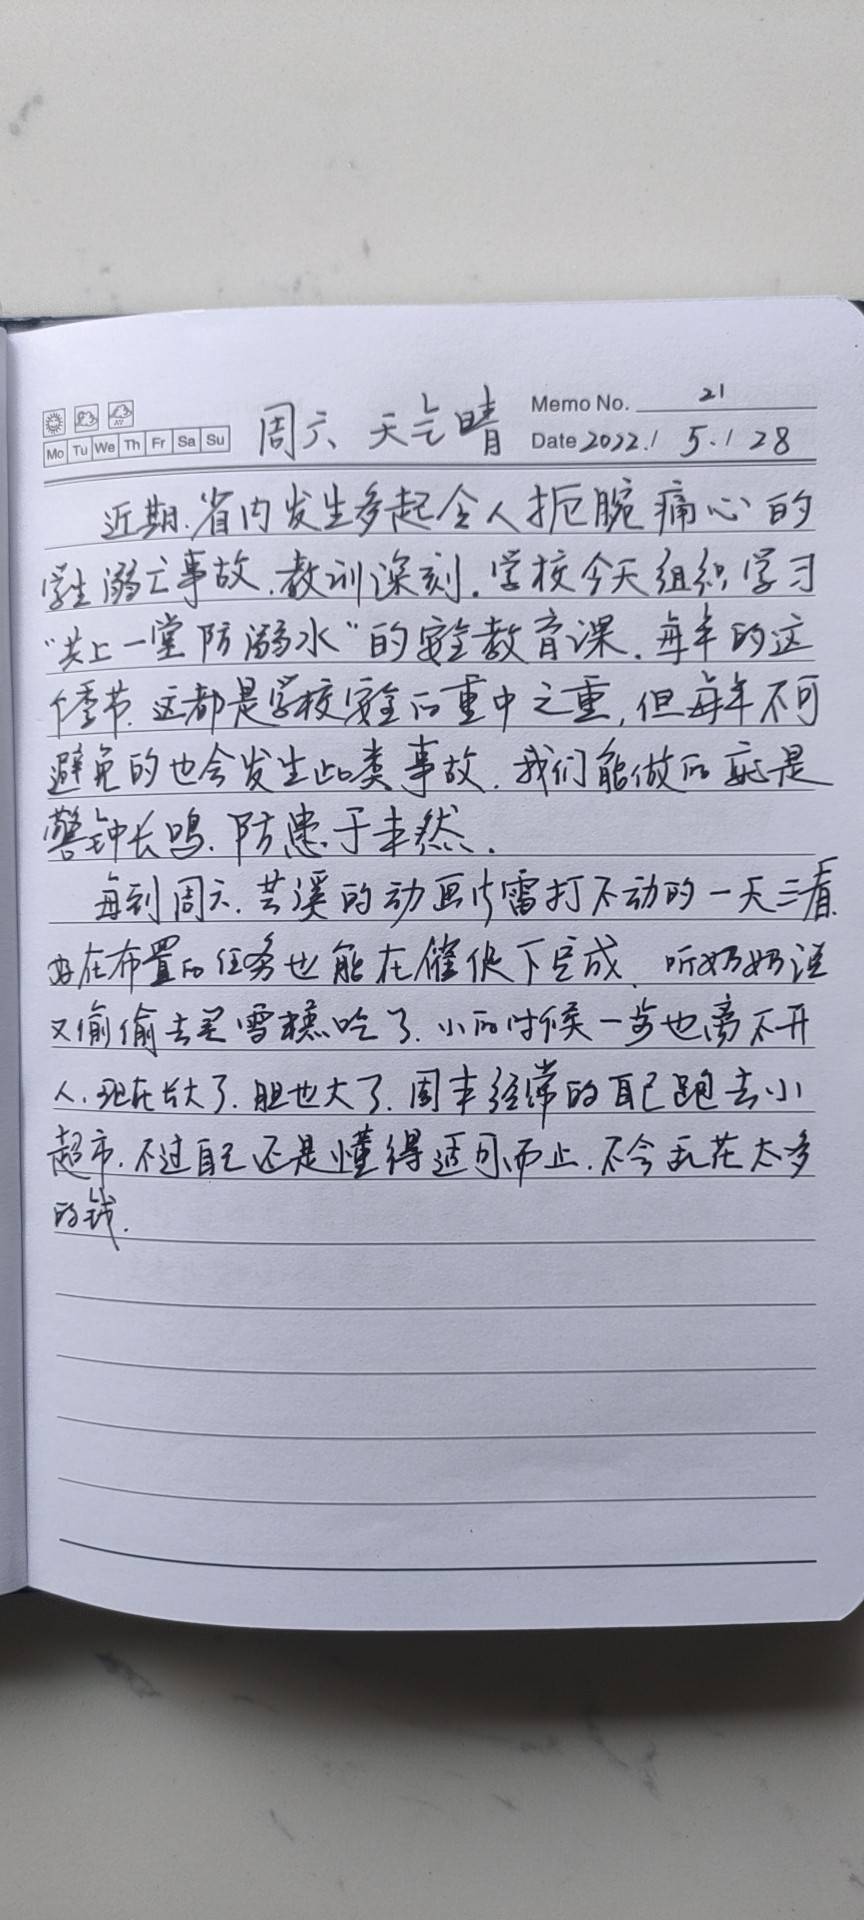 Memo No. 21
Mo Tu We Th Fr Sa Su
周六 天气晴
Date 2022. / 5. / 28
近期,省内发生多起令人扼腕痛心的
学生溺亡事故,教训深刻,学校今天组织学习
“共上一堂防溺水”的安全教育课,每年的这
个季节,这都是学校安全的重中之重,但每年不可
避免的也会发生此类事故,我们能做的就是
警钟长鸣,防患于未然.
每到周六,芸溪的动画片雷打不动的一天三看,
好在布置的任务也能在催促下完成,听奶奶说
又偷偷去买雪糕吃了,小的时候一步也离不开
人,现在长大了,胆也大了,周末经常的自己跑去小
超市,不过自己还是懂得适可而止,不会乱花太多
的钱.